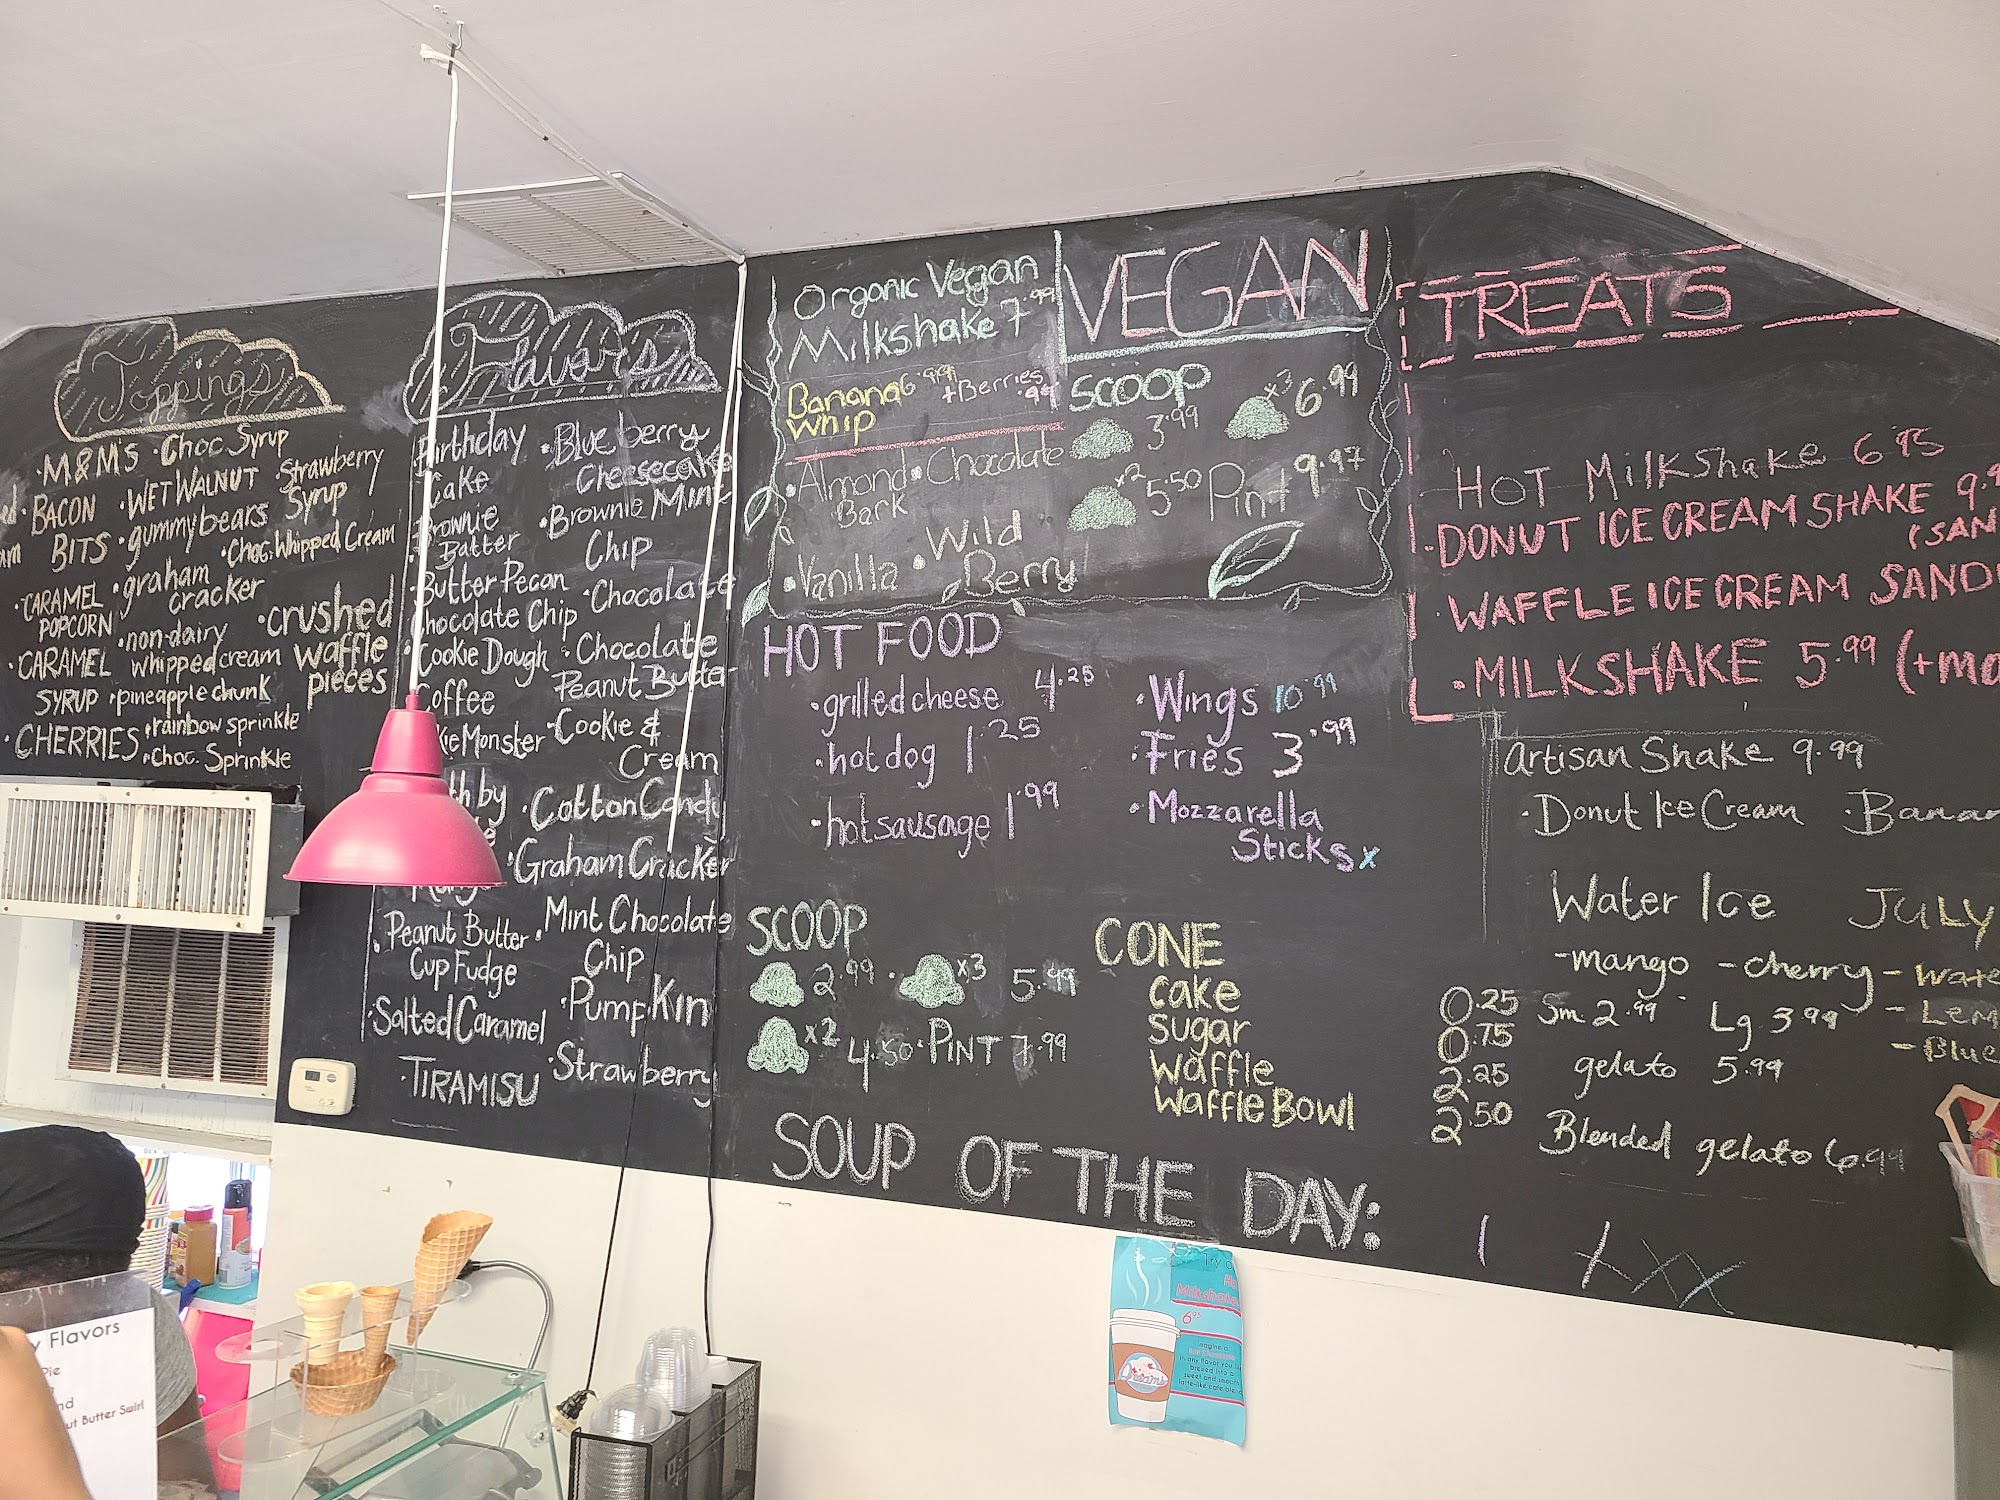 Toppings
• M&M's • Choc. Syrup
• BACON BITS • WET WALNUT • Strawberry Syrup
• gummybears
• Choc. Whipped Cream
• CARAMEL POPCORN • graham cracker
• non-dairy whipped cream
• crushed waffle pieces
• CARAMEL SYRUP
• pineapple chunk
• CHERRIES • rainbow sprinkle
• Choc. Sprinkle
Flavors
Birthday Cake
• Blueberry Cheesecake
Brownie Batter
• Brownie Mint Chip
Butter Pecan
• Chocolate
Chocolate Chip
• Cookie Dough
• Chocolate Peanut Butter
Coffee
Monster
• Cookie & Cream
by
• Cotton Candy
• Graham Cracker
• Peanut Butter Cup Fudge
• Mint Chocolate Chip
• Salted Caramel
• Pumpkin
• TIRAMISU
• Strawberry
Organic Vegan
Milkshake 7.99
Banana Whip 6.99
+Berries .99
• Almond Bark
• Chocolate
• Vanilla
• Wild Berry
VEGAN
SCOOP
3.99
x3 6.99
x2 5.50
Pint 9.97
HOT FOOD
• grilled cheese 4.25
• hot dog 1.25
• hot sausage 1.99
• Wings 10.99
• Fries 3.99
• Mozzarella
Sticks x
SCOOP
2.99 • x3 5.99
x2 4.50 • PINT 7.99
CONE
cake 0.25
sugar 0.75
Waffle 2.25
Waffle Bowl 2.50
SOUP OF THE DAY:
TREATS
HOT Milkshake 6.95
• DONUT ICE CREAM SHAKE
• WAFFLE ICE CREAM
• MILKSHAKE 5.99
Artisan Shake 9.99
• Donut Ice Cream
Water Ice JULY
- mango - cherry
Sm 2.99 Lg 3.99
gelato 5.99
Blended gelato 6.99
Try
Milkshake
6.95
imagine a
in any flavor you
brewed into a
sweet and smooth
latte-like cafe
Dreams
Flavors
Pie
Butter Swirl